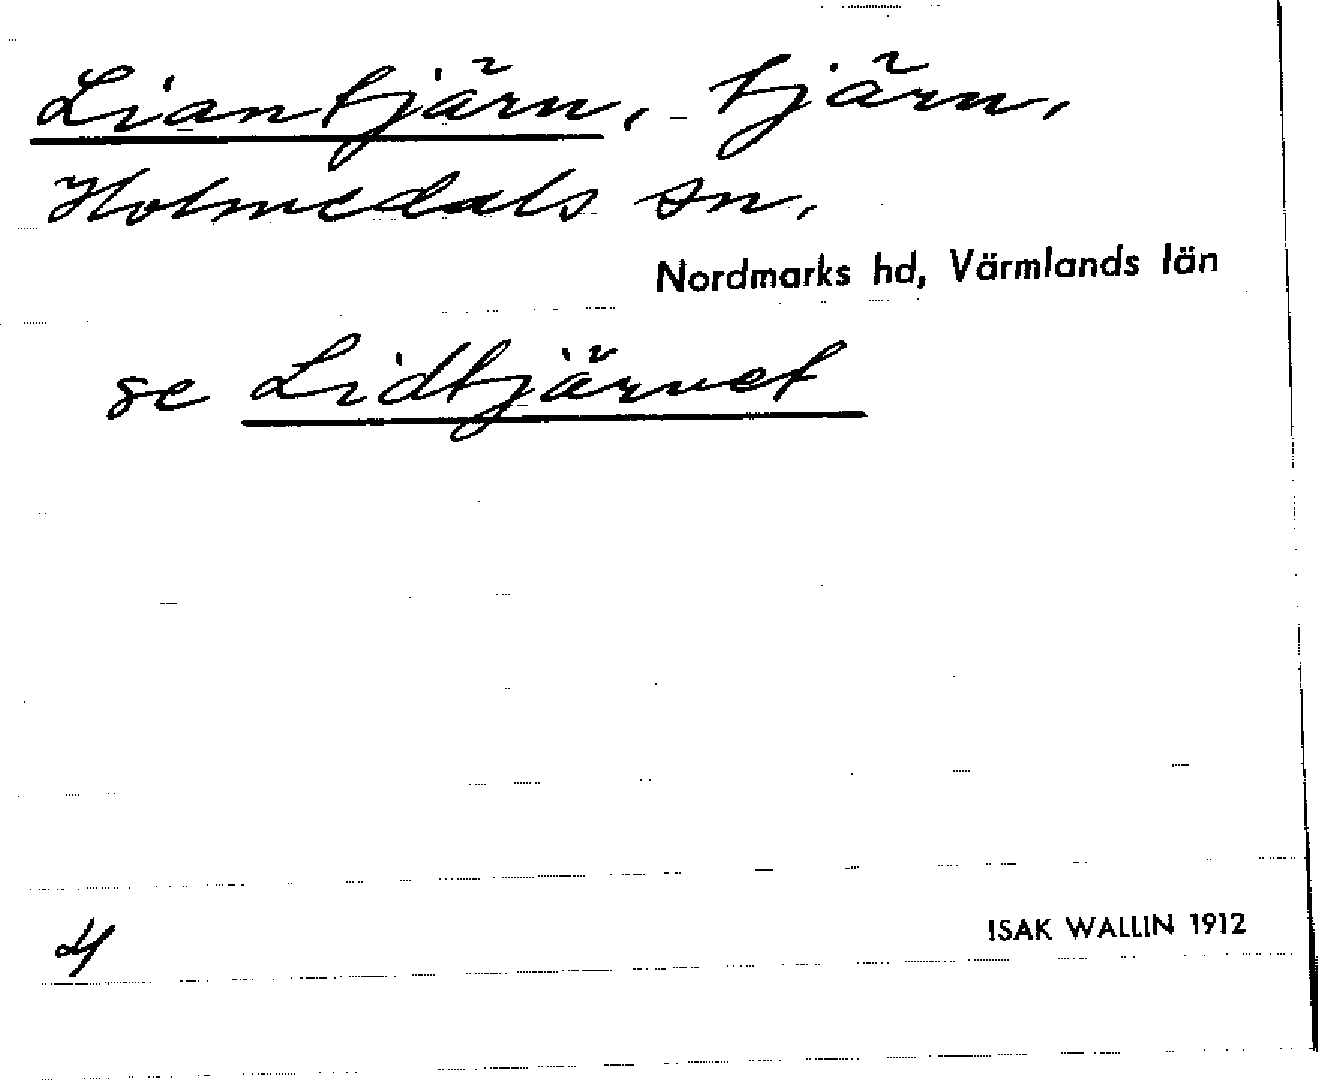 Liantjärn, tjärn,
Holmedals sn,
Nordmarks hd, Värmlands län
se Lidtjärnet
ISAK WALLIN 1912